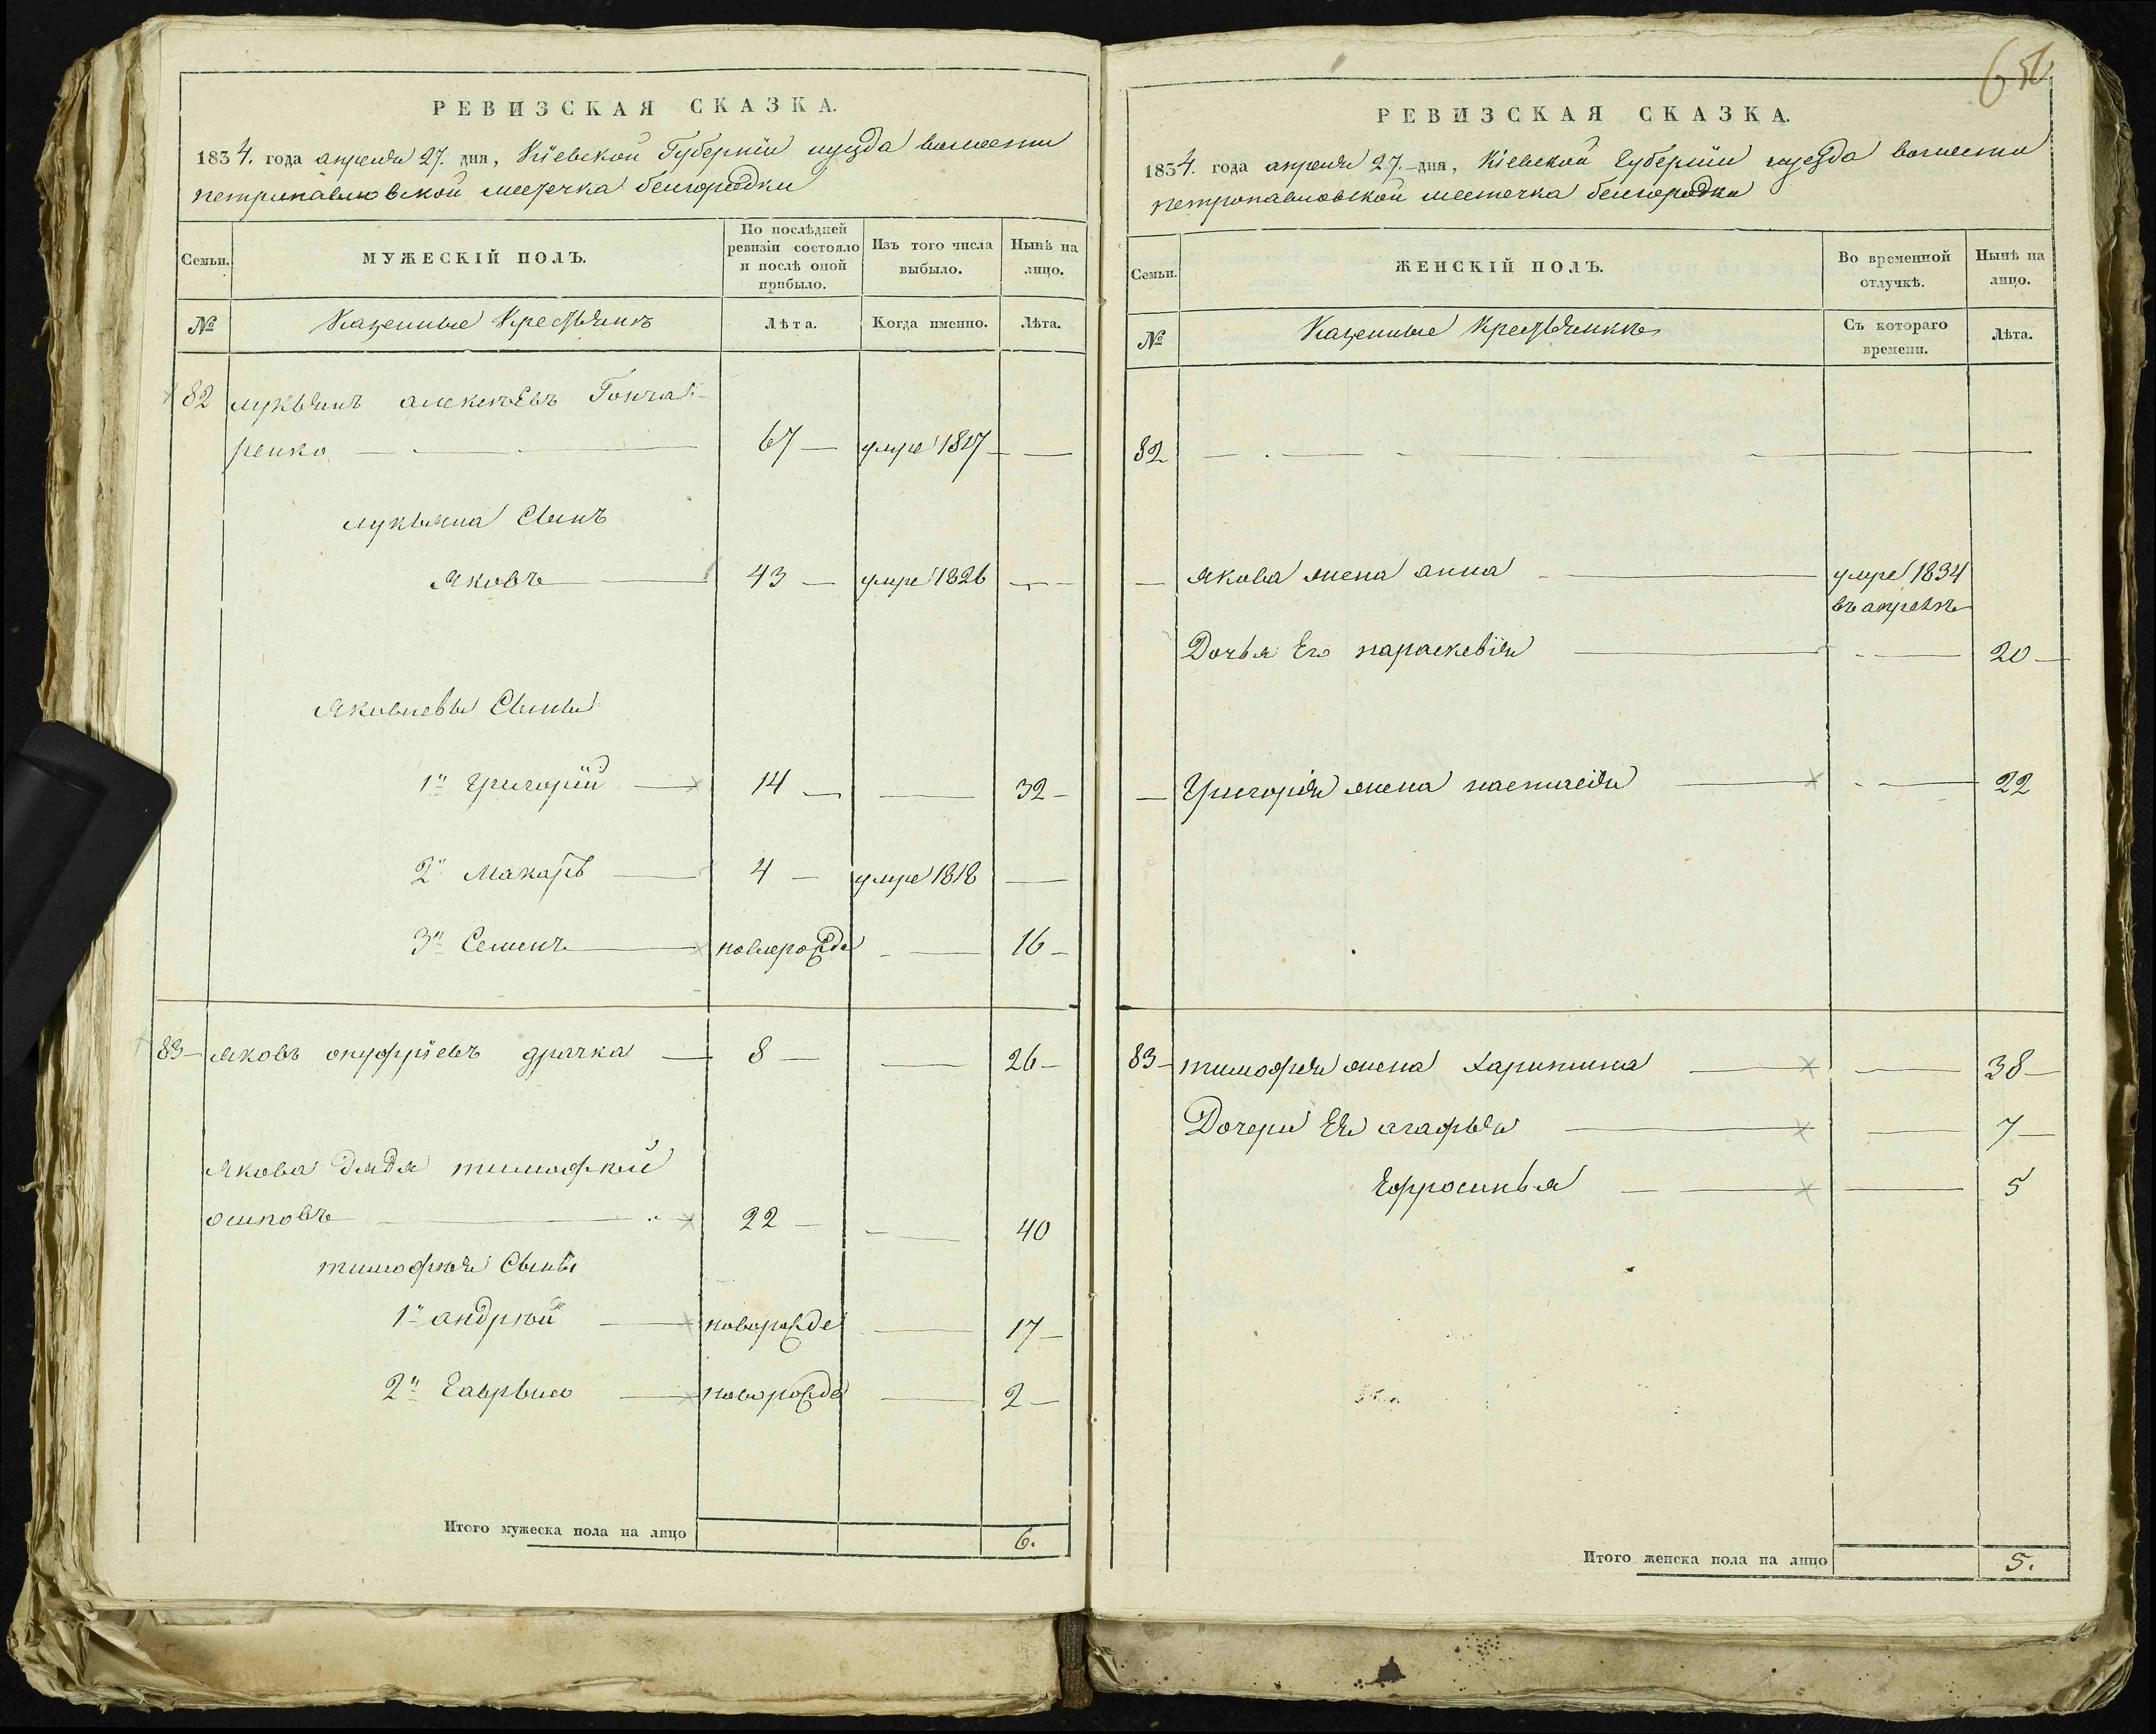 РЕВИЗСКАЯ СКАЗКА.
1834. года апреля 27. дня, Кіевской Губерніи и уезда волости
петропавловской местечка белгородки
Семьи.
МУЖЕСКІЙ ПОЛЪ.
По послѣдней ревизіи состояло и послѣ оной прибыло.
Изъ того числа выбыло.
Нынѣ на лицо.
№
Казенные Крестьянъ
Лѣта.
Когда именно.
Лѣта.
82 лукьянъ алексѣевъ Гонча-
ренко 67 умре 1827
лукьяна Сынъ
Яковъ 43 умре 1826
Яковлевы Сыны
1й Григорій 14 32
2й Макаръ 4 умре 1818
3й Семенъ новорожде 16
83 яковъ онуфріевъ драчка 8 26
Якова дядя тимофѣй
осиповъ 22 40
тимофѣя Сыны
1й андрѣй новорожде 17
2й Гаврыло новорожде 2
Итого мужеска пола на лицо 6.
РЕВИЗСКАЯ СКАЗКА.
1834. года апреля 27. дня, Кіевской Губерніи и уезда волости
петропавловской местечка белгородки
Семьи.
ЖЕНСКІЙ ПОЛЪ.
Во временной отлучкѣ.
Нынѣ на лицо.
№
Казенные Крестьянки
Съ котораго времени.
Лѣта.
82
Якова жена анна умре 1834
въ апрелѣ
Дочья Его параскевія 20
Григорія жена настасія 22
83 тимофея жена харитина 38
Дочери Его агафья 7
Ефросинья 5
Итого женска пола на лицо 5.